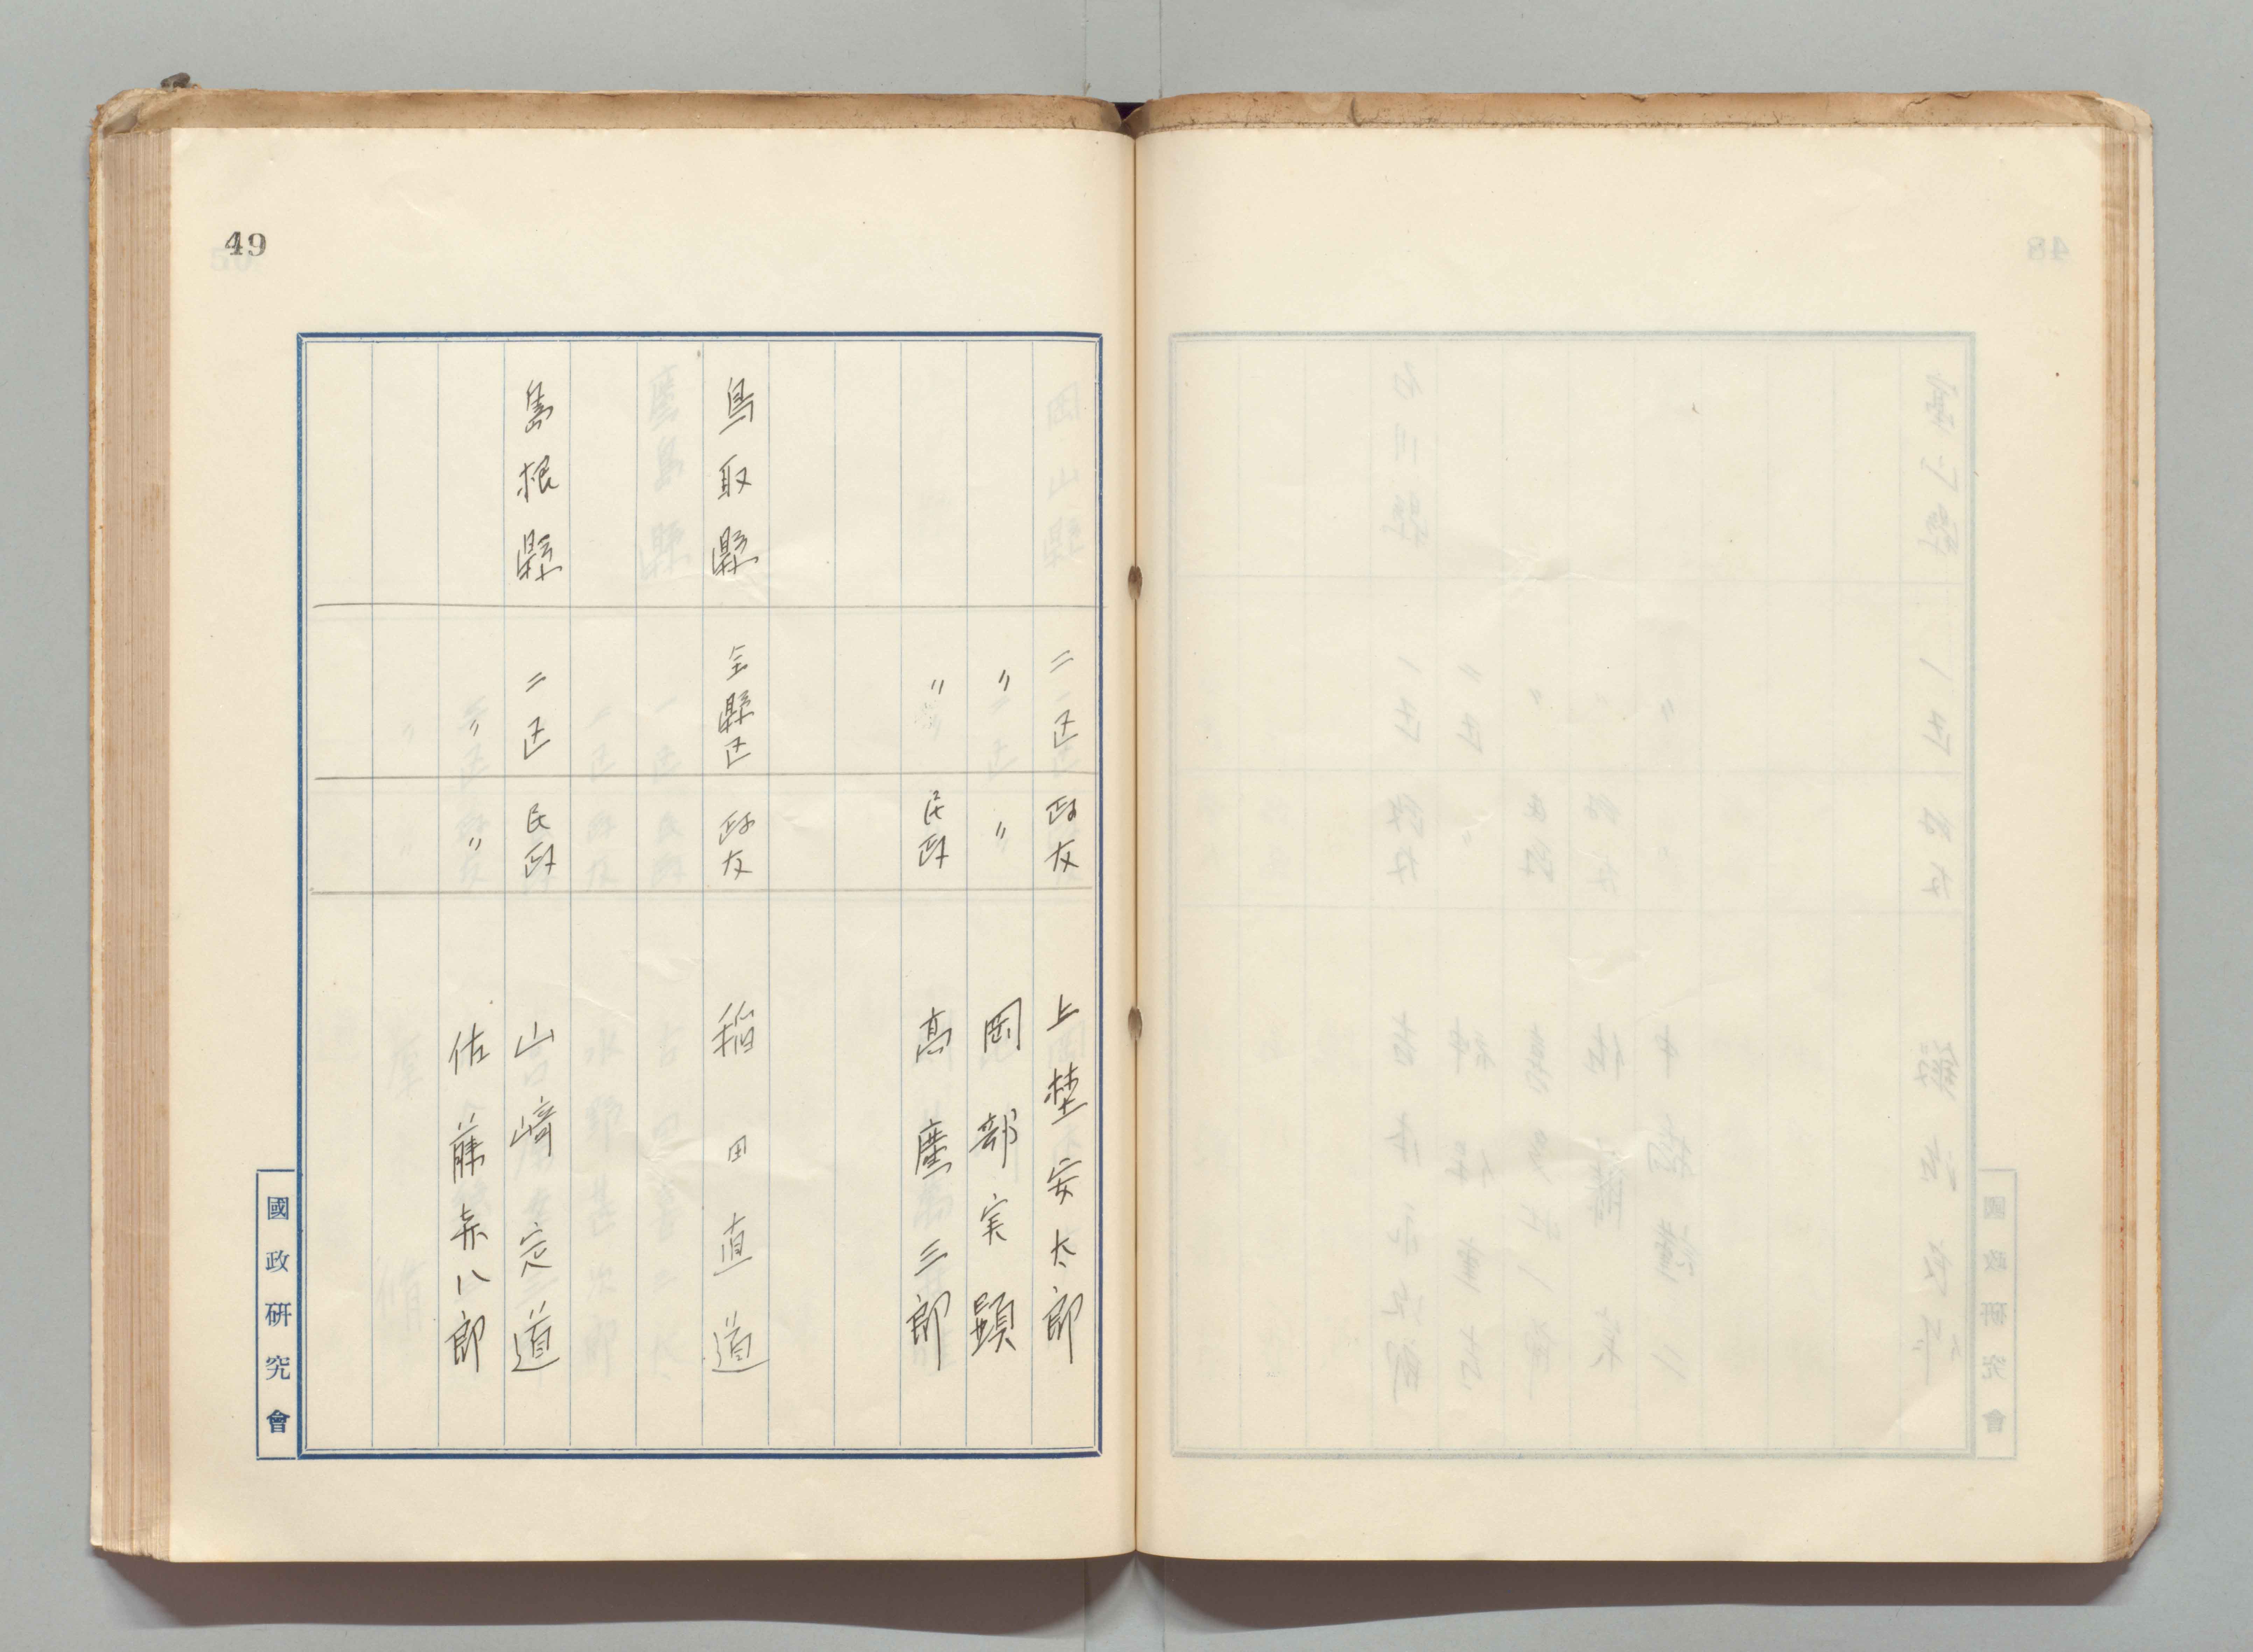 49
二区 政友 上埜安太郎
〃 〃 岡部実顕
〃 民政 高廣三郎
鳥取縣 全縣区 政友 稲田直道
島根縣 二区 民政 山崎定道
〃 〃 佐藤㐂八郎
國政研究會